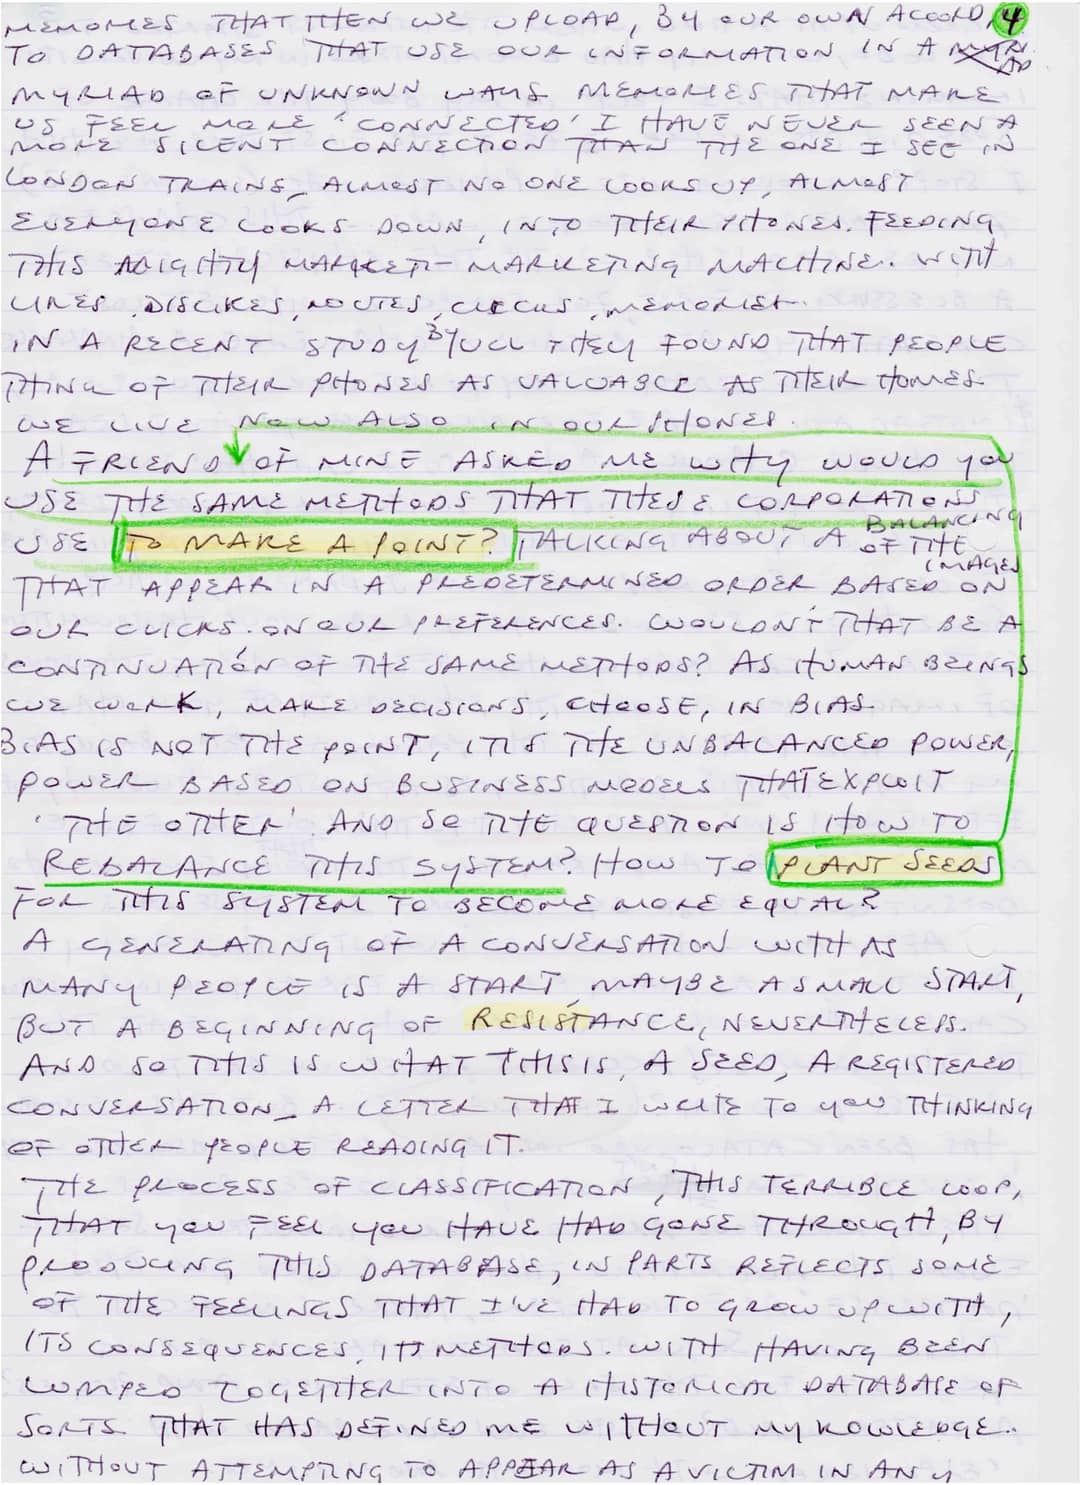 MEMORIES THAT THEN WE UPLOAD, BY OUR OWN ACCORD, 4
TO DATABASES THAT USE OUR INFORMATION IN A
MYRIAD OF UNKNOWN WAYS MEMORIES THAT MAKE
US FEEL MORE 'CONNECTED' I HAVE NEVER SEEN A
MORE SILENT CONNECTION THAN THE ONE I SEE IN
LONDON TRAINS_ ALMOST NO ONE LOOKS UP, ALMOST
EVERYONE LOOKS DOWN, INTO THEIR PHONES. FEEDING
THIS MIGHTY MARKET-MARKETING MACHINE. WITH
LIKES, DISLIKES, ROUTES, CLICKS, MEMORIES.
IN A RECENT STUDY BY UCL THEY FOUND THAT PEOPLE
THINK OF THEIR PHONES AS VALUABLE AS THEIR HOMES
WE LIVE NOW ALSO IN OUR PHONES.
A FRIEND OF MINE ASKED ME WHY WOULD YOU
USE THE SAME METHODS THAT THESE CORPORATIONS
USE TO MAKE A POINT? TALKING ABOUT A BALANCING
OF THE IMAGES
THAT APPEAR IN A PREDETERMINED ORDER BASED ON
OUR CLICKS. ON OUR PREFERENCES. WOULDN'T THAT BE A
CONTINUATION OF THE SAME METHODS? AS HUMAN BEINGS
WE WORK, MAKE DECISIONS, CHOOSE, IN BIAS.
BIAS IS NOT THE POINT, IT IS THE UNBALANCED POWER,
POWER BASED ON BUSINESS MODELS THAT EXPLOIT
'THE OTHER' AND SO THE QUESTION IS HOW TO
REBALANCE THIS SYSTEM? HOW TO PLANT SEEDS
FOR THIS SYSTEM TO BECOME MORE EQUAL?
A GENERATING OF A CONVERSATION WITH AS
MANY PEOPLE IS A START, MAYBE A SMALL START,
BUT A BEGINNING OF RESISTANCE, NEVERTHELESS.
AND SO THIS IS WHAT THIS IS, A SEED, A REGISTERED
CONVERSATION_ A LETTER THAT I WRITE TO YOU THINKING
OF OTHER PEOPLE READING IT.
THE PROCESS OF CLASSIFICATION, THIS TERRIBLE LOOP,
THAT YOU FEEL YOU HAVE HAD GONE THROUGH, BY
PRODUCING THIS DATABASE, IN PARTS REFLECTS SOME
OF THE FEELINGS THAT I'VE HAD TO GROW UP WITH,
ITS CONSEQUENCES, ITS METHODS. WITH HAVING BEEN
LUMPED TOGETHER INTO A HISTORICAL DATABASE OF
SORTS THAT HAS DEFINED ME WITHOUT MY KOWLEDGE.
WITHOUT ATTEMPTING TO APPEAR AS A VICTIM IN ANY